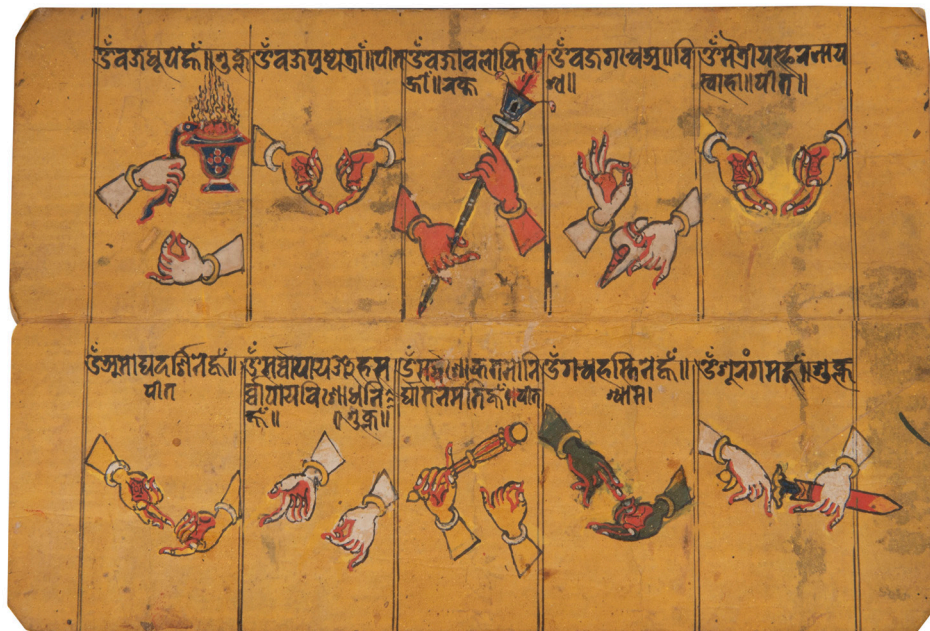 ॐवज्रधूपेहूं॥शुक्ल
ॐवज्रपुष्पेत्रां॥पीत
ॐवज्रावलोकित
ह्रीं॥रक्त
ॐवज्रगन्धेअः॥वि
श्व॥
ॐमैत्रीयस्फरनाय
स्वाहा॥पीत॥
ॐअमोघदर्शिनेहूं॥
पीत
ॐसर्वापायञ्जहस
र्वापायविशोधनि
हूं॥ शुक्ल॥
ॐसर्वशोकतमोनि
र्घातनमतिहूं॥पीत
ॐगन्धहस्तिनेहूं॥
श्याम।
ॐशूरंगमेहूं॥शुक्ल